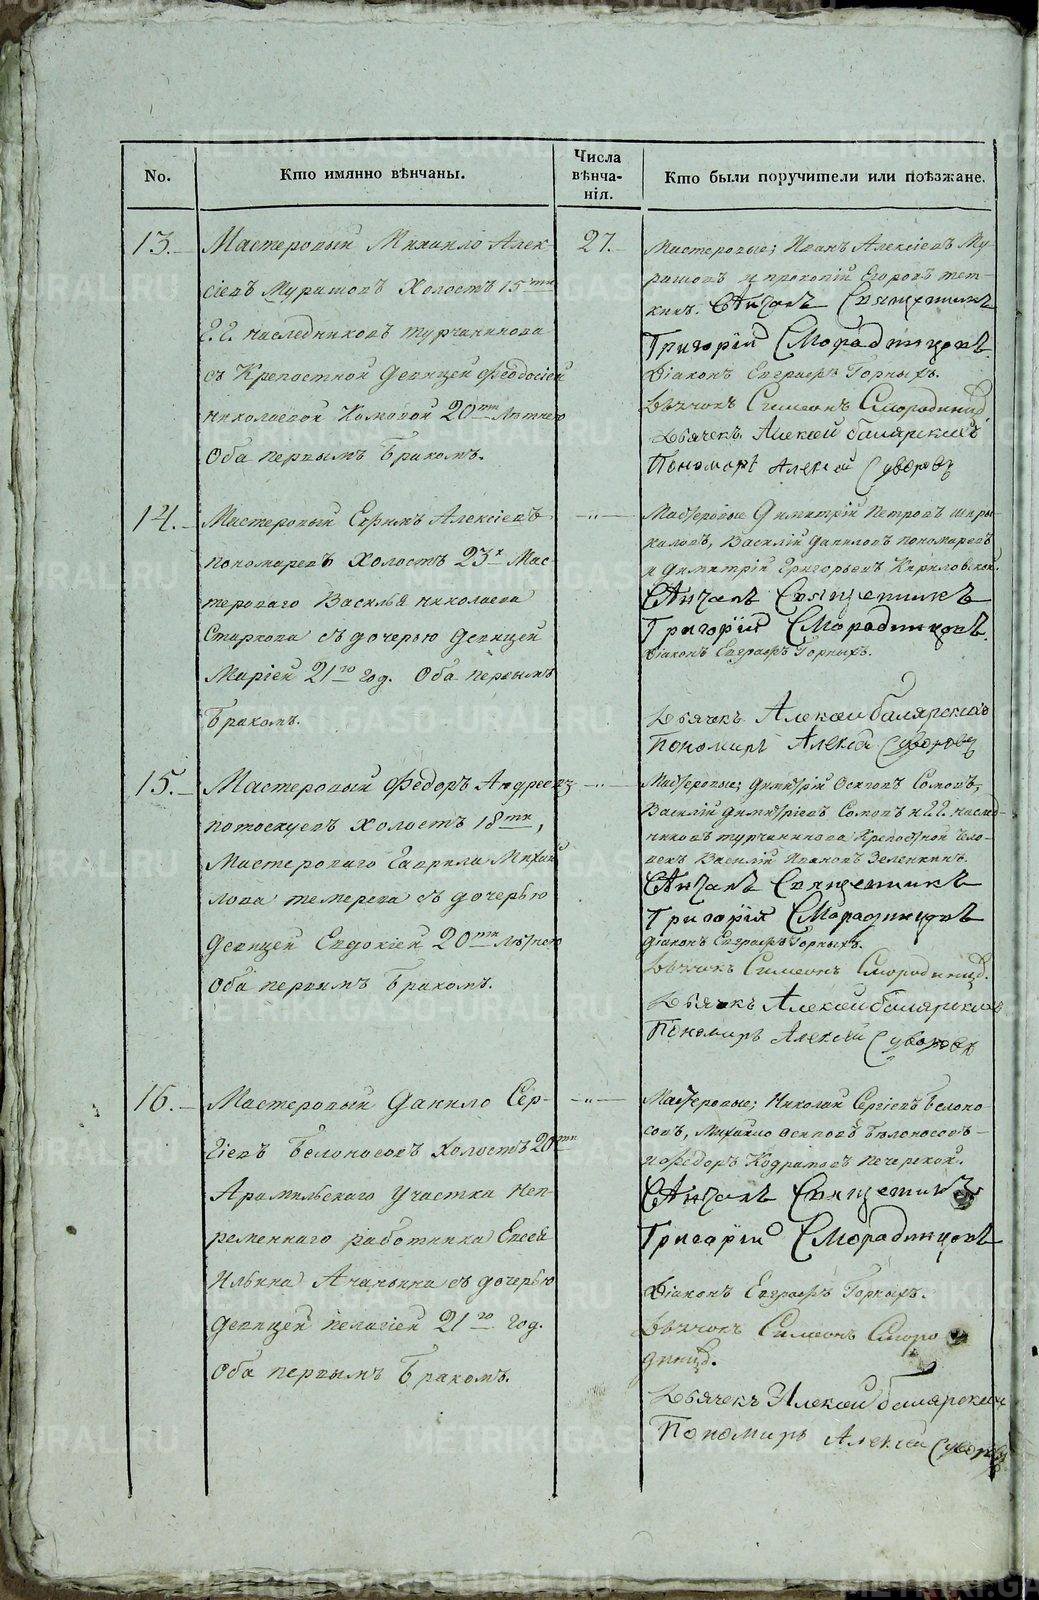 No.
Кто имянно вѣнчаны.
Числа
вѣнча-
нія.
Кто были поручители или поѣзжане.
13.
Мастеровый Михаило Алек-
сіевъ Мурашовъ Холостъ 15ти
Г.г. наследниковъ турчанинова
съ Крепостной девицей Феодосіей
николаевой Комовой 20ти Летнею
Оба первымъ Бракомъ.
27.
Мастеровые; Иванъ Алексіевъ Му-
рашовъ и прокопій Егоровъ тет-
кинъ. Священникъ
Григорій Смородинцовъ.
Діаконъ Евграфъ Горныхъ.
Дьячокъ Симеонъ Смородинц.
Дьячекъ Алексей балярскихъ
Пономарь Алексей Суворовъ
14.
Мастеровый Ефимъ Алексіевъ
пономаревъ Холостъ 23х Мас-
тероваго Василья николаева
Старкова съ дочерью девицей
Маріей 21го год. Оба первымъ
Бракомъ.
-"-
Мастеровые Димитрій Петровъ
Василій даниловъ пономаревъ
и димитрій Григорьевъ
Священникъ
Григорій Смородинцовъ.
Діаконъ Евграфъ Горныхъ.
Дьячекъ Алексей балярскихъ
Пономарь Алексей Суворовъ
15.
Мастеровый Федоръ Андреевъ
потоскуевъ Холостъ 18ти,
Мастероваго Гаврила Михаи
лова темерева съ дочерью
девицей Евдокіей 20ти Летнею
Оба первымъ Бракомъ.
-"-
Мастеровые; димитрій Осиповъ Сомовъ,
Василій димитріевъ Сомовъ и г.г. наслед-
никовъ турчанинова Крепостной Чело-
векъ Василій Ивановъ Зеленкинъ.
Священникъ
Григорій Смородинцовъ
діаконъ Евграфъ Горныхъ.
Дьячокъ Симеонъ Смородинц.
Дьячекъ Алексей балярскихъ
Пономарь Алексей Суворовъ
16.
Мастеровый Данило Сер-
гіевъ Белоносовъ Холостъ 20ти
Арамильскаго Участка неп-
ременнаго работника Евсея
Ильина Ачанкина съ дочерью
девицей пелагіей 21го год.
Оба первымъ Бракомъ.
-"-
Мастеровые; Николай Сергіевъ Белоно-
совъ, Михайло осиповъ Белоносовъ
и Федоръ Печерской.
Священникъ
Григорій Смородинцовъ
Діаконъ Евграфъ Горныхъ.
Дьячокъ Симеонъ Сморо
динц.
Дьячекъ Алексей балярскихъ
Пономарь Алексей Суворовъ
METRIKI.GASO-URAL.RU